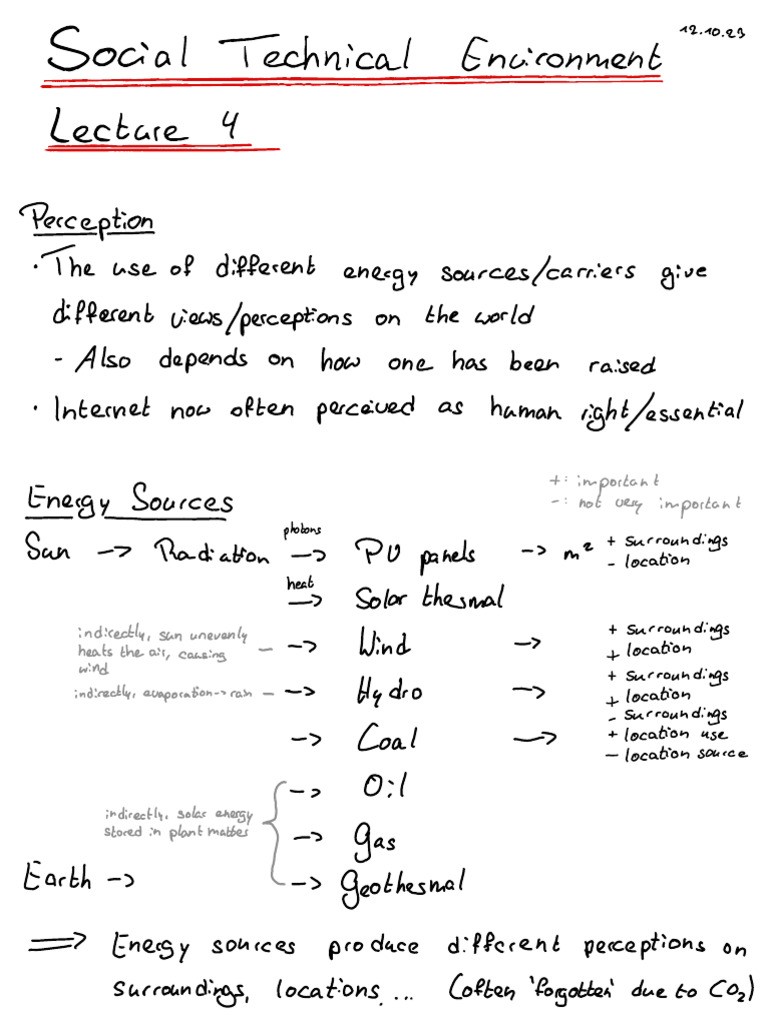 Social Technical Environment 12.10.23
Lecture 4
Perception
· The use of different energy sources/carriers give
different views/perceptions on the world
- Also depends on how one has been raised
· Internet now often perceived as human right/essential
+: important
-: not very important
Energy Sources
Sun -> Radiation photons -> PV panels -> m² + surroundings
- location
heat -> Solar thermal
indirectly, sun unevenly
heats the air, causing
wind - -> Wind -> + surroundings
+ location
indirectly, evaporation -> rain - -> Hydro -> + surroundings
+ location
-> Coal -> - surroundings
+ location use
- location source
-> Oil
indirectly, solar energy
stored in plant matter
-> Gas
Earth -> -> Geothermal
=> Energy sources produce different perceptions on
surroundings, locations, ... (often 'forgotten' due to CO₂)